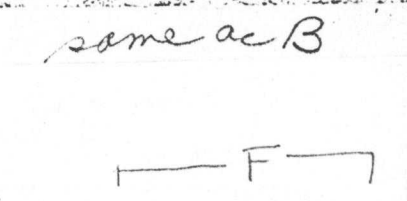 same as B
F